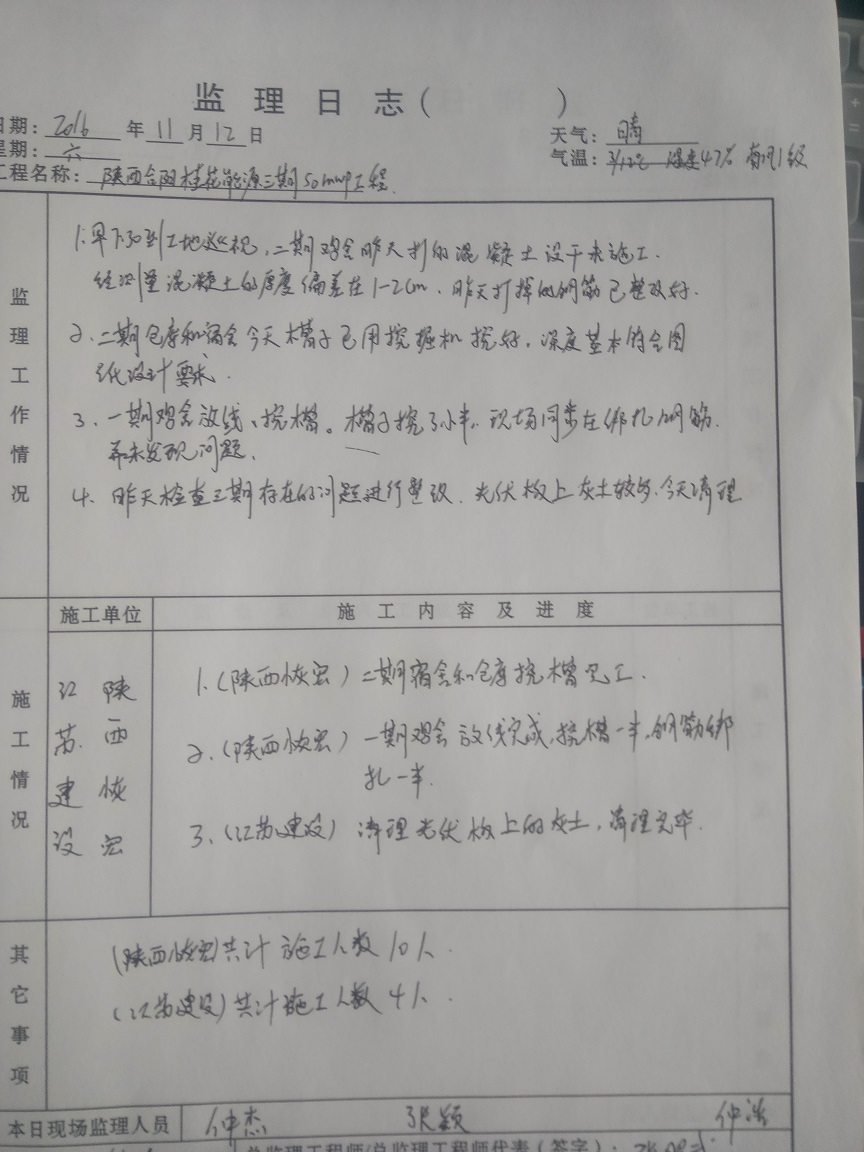 监理日志( )
日期: 2016 年 11 月 12 日 天气: 晴
星期: 六 气温: 3/12℃ 湿度47% 南风1级
工程名称: 陕西合阳桂花能源三期50mwp工程.
监理工作情况
1.早7:30到工地巡视,二期鸡舍昨天打的混凝土没干未施工.
经测量混凝土的厚度偏差在1-2cm.昨天打掉的钢筋已整改好.
2.二期仓库和宿舍今天槽子已用挖掘机挖好.深度基本符合图
纸设计要求.
3、一期鸡舍放线、挖槽。槽子挖了小半.现场同步在绑扎钢筋.
并未发现问题.
4.昨天检查三期存在的问题进行整改.光伏板上灰土较多.今天清理
施工单位 施工内容及进度
施工情况
江苏建设 陕西恢宏
1.(陕西恢宏)二期宿舍和仓库挖槽完工.
2.(陕西恢宏)一期鸡舍放线完成,挖槽一半,钢筋绑
扎一半.
3、(江苏建设)清理光伏板上的灰土,清理完毕.
其它事项
(陕西恢宏)共计施工人数10人.
(江苏建设)共计施工人数4人.
本日现场监理人员 仲杰 张颖 仲浩
总监理工程师/总监理工程师代表(签字):